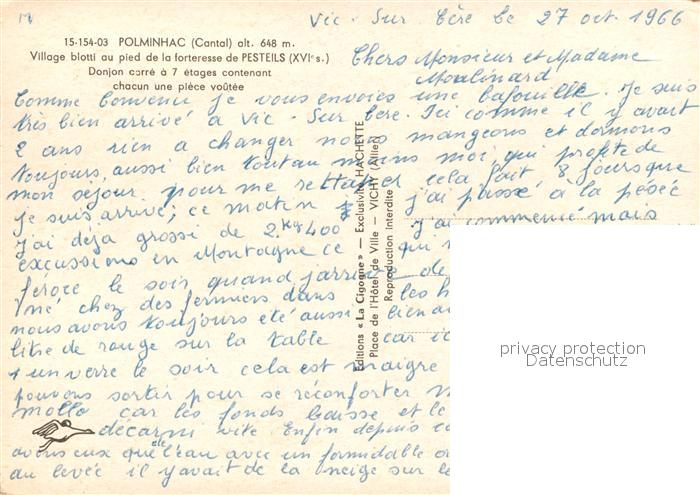 Vic-Sur Cère le 27 oct. 1966
15-154-03 POLMINHAC (Cantal) alt. 648 m.
Village blotti au pied de la forteresse de PESTEILS (XVIe s.)
Donjon carré à 7 étages contenant
chacun une pièce voûtée
Chers Monsieur et Madame
Moulinard
Comme Convenu je vous envoies une bafouille. Je suis
très bien arrivé à Vic-Sur Cere. Ici comme il y avait
2 ans rien a changer nous mangeons et dormons
toujours, aussi bien tout au moins moi, qui profite de
mon sejour pour me cela fait 8 jours que
je suis arrivé, ce matin j'ai passé à la pesée
j'ai déja grossi de 2.Kgs 400 J'ai commencé mais
excussions en Montagne ce qui
féroce le soir quand j'arrive de
né chez des fermiers dans les h
nous avons toujours été aussi bien
litre de rouge sur la table car ic
1 un verre le soir cela est maigre
pouvons sortir pour se réconforter
mollo car les fonds baisse et le
décarni vite Enfin depuis
avons eux que de l'eau avec un formidable
au levée il y avait de la neige sur le
Editions « La Cigogne » — Exclusivité HACHETTE
Place de l'Hôtel de Ville — VICHY (Allier)
Reproduction Interdite
privacy protection
Datenschutz